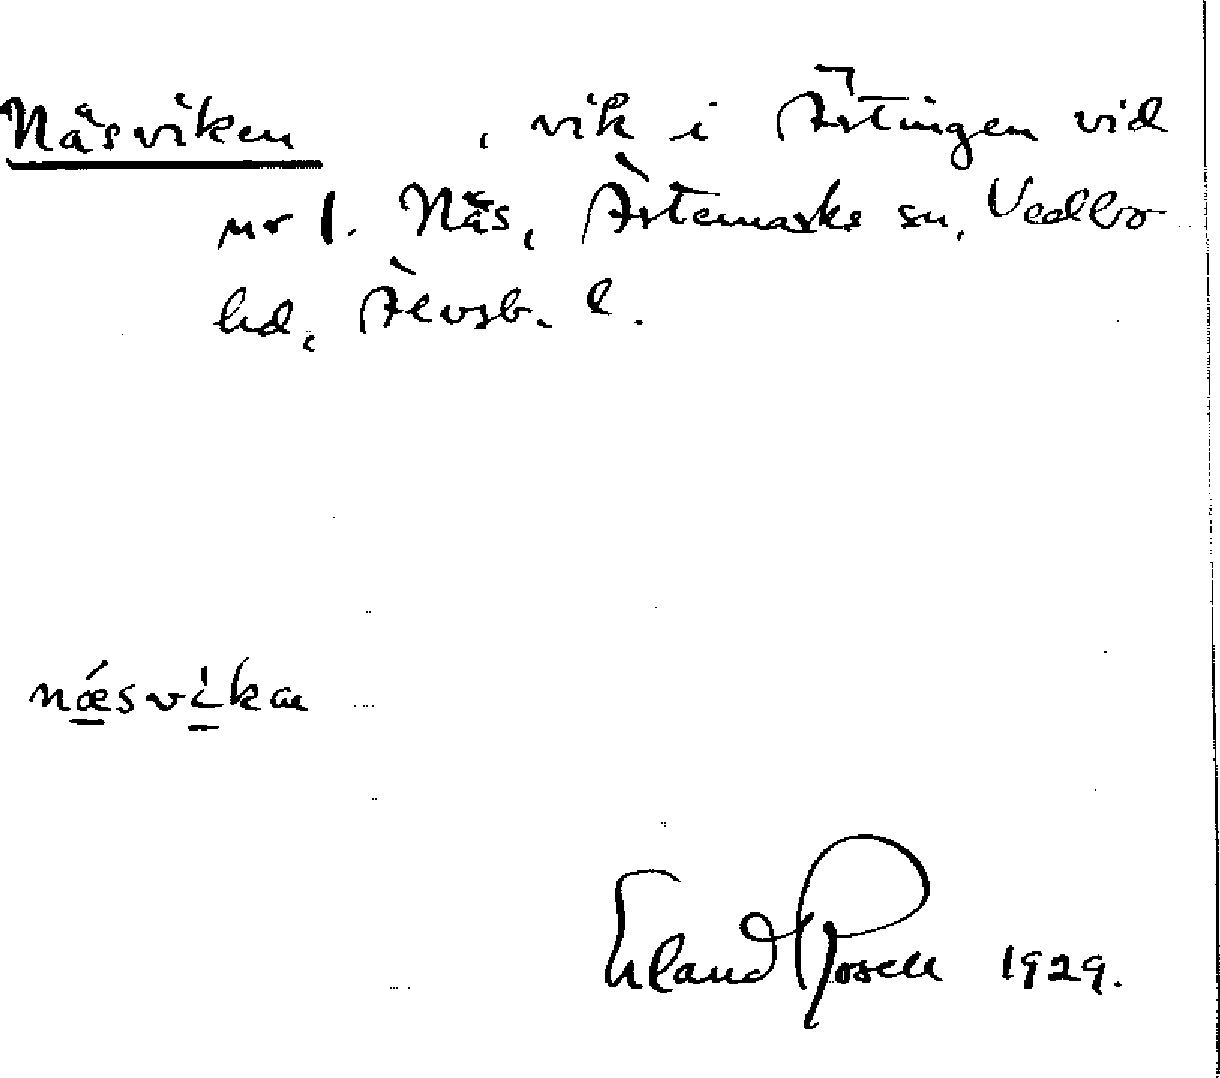 Näsviken , vik i Ärtingen vid
nr 1. Näs, Ärtemarks sn, Vedbo
hd, Älvsb. l.
nǽsvìkan
Erland Rosell 1929.